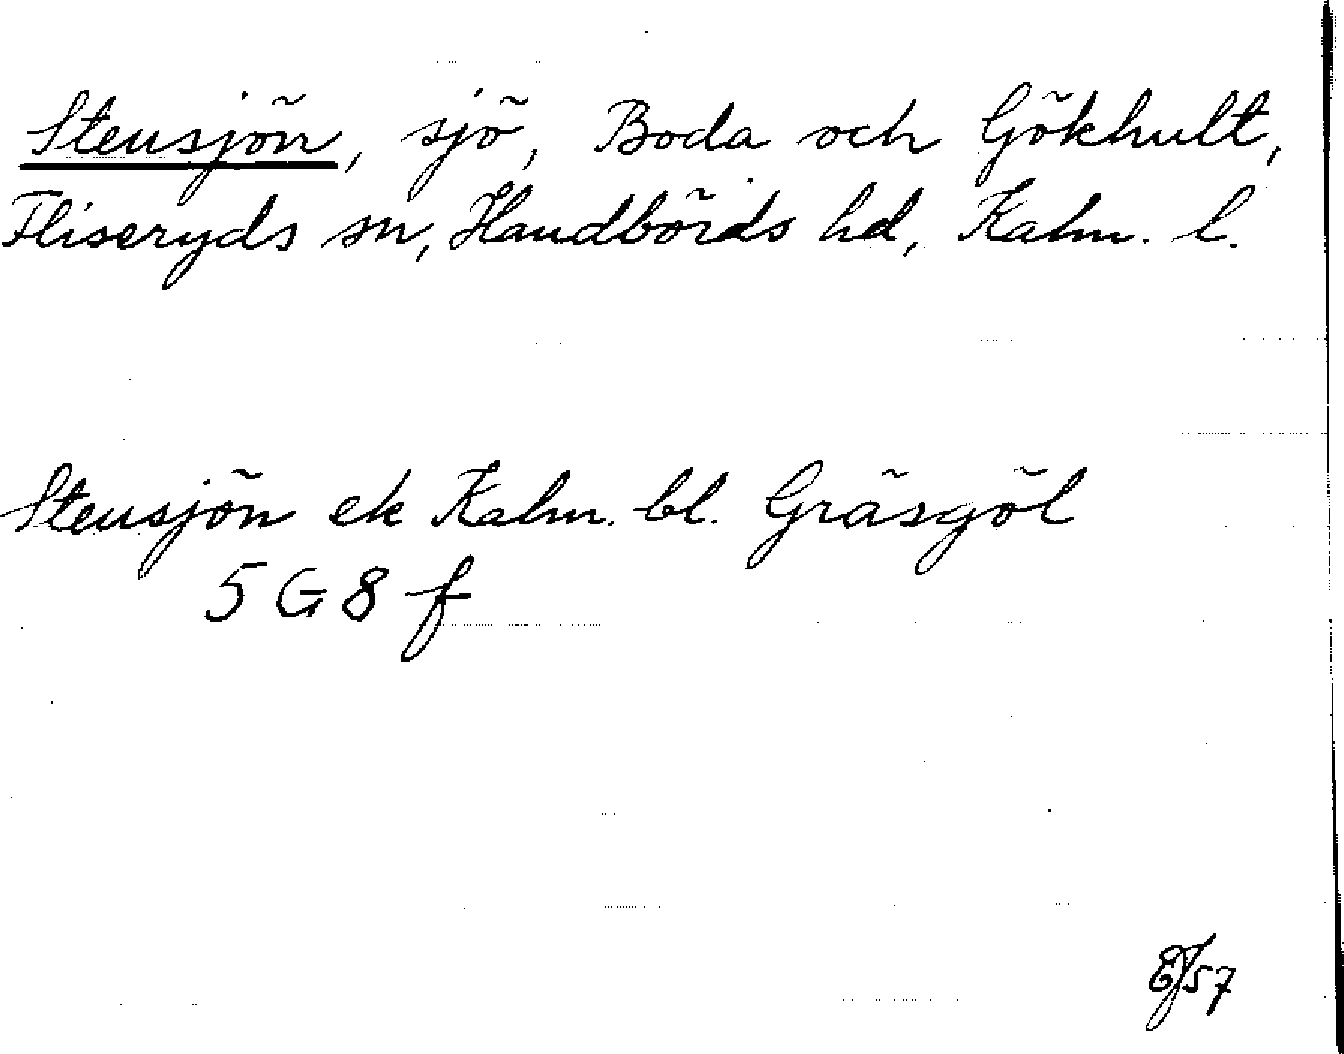 Stensjön, sjö, Boda och Gökhult,
Fliseryds sn, Handbörds hd, Kalm. l.
Stensjön ek Kalm. bl. Gräsgöl
5 G 8 f
EJ 57